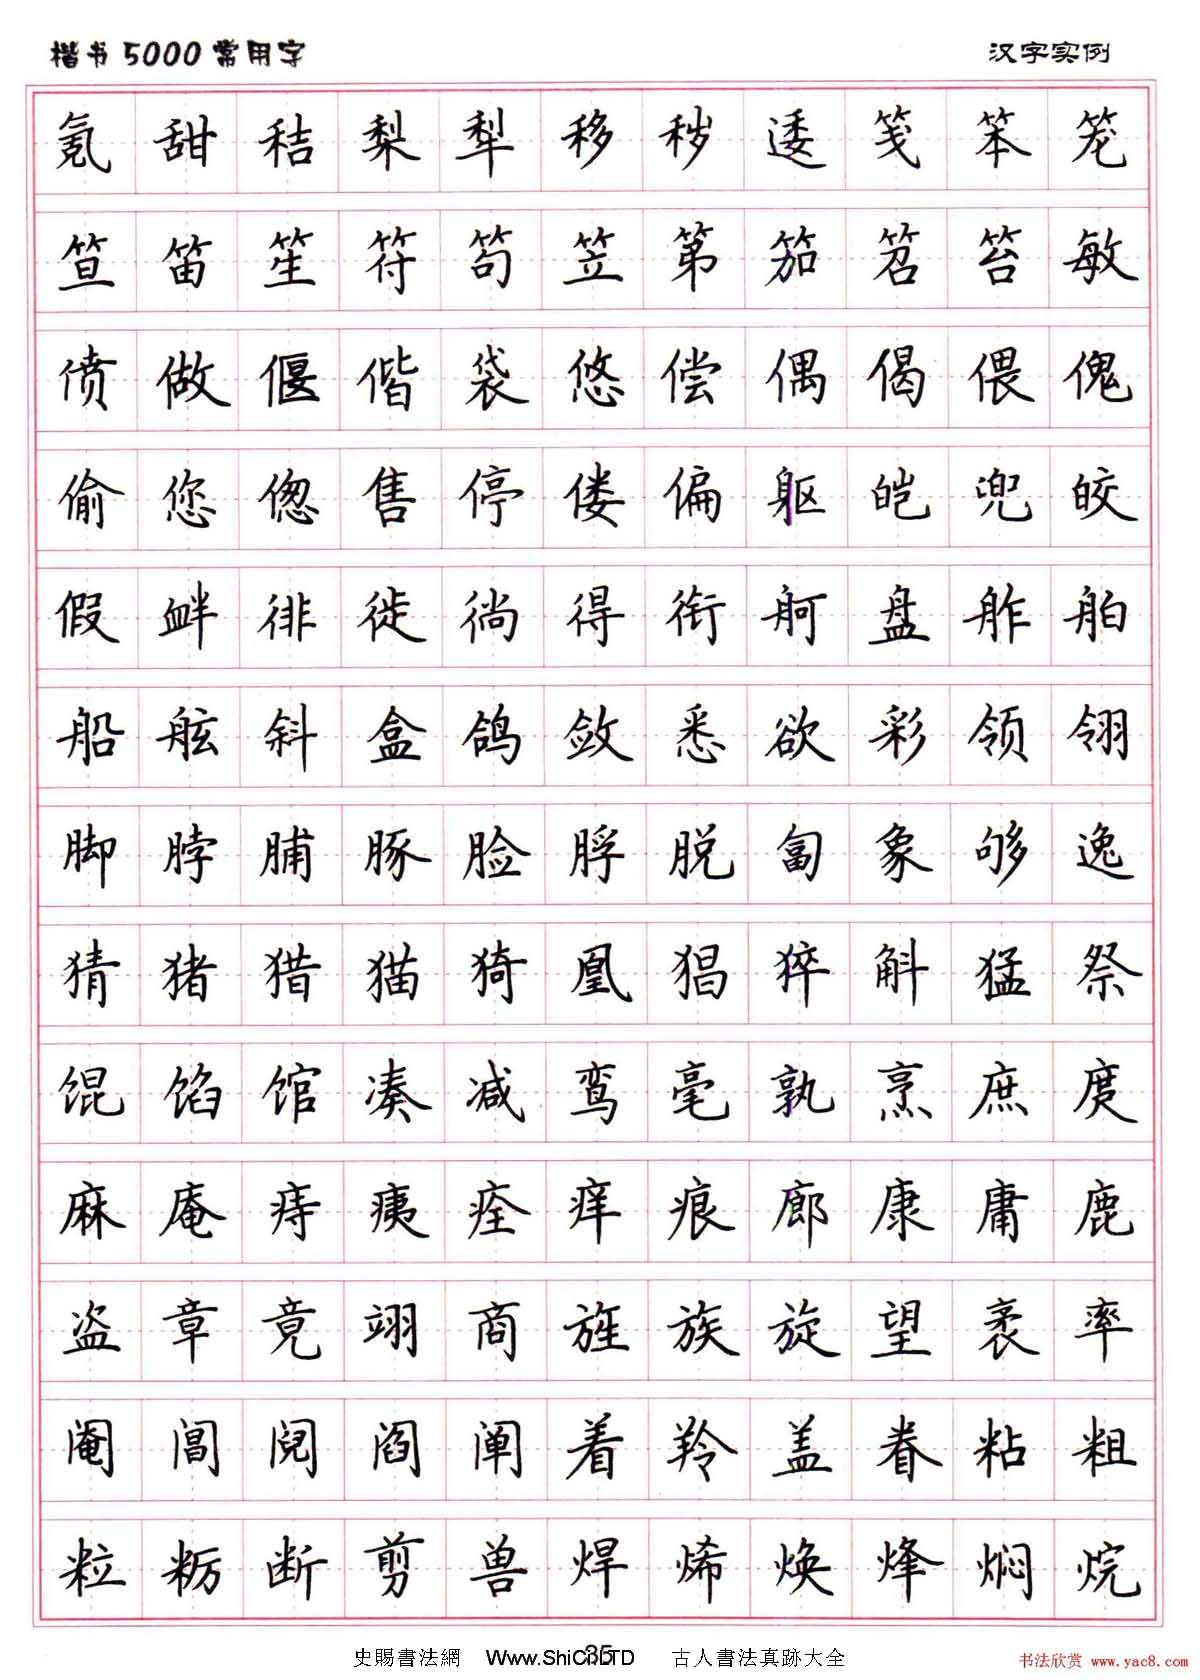 楷书5000常用字 汉字实例
氪 甜 秸 梨 犁 移 秽 逶 笺 笨 笼
笪 笛 笙 符 笱 笠 第 笳 笤 笞 敏
偾 做 偃 偕 袋 悠 偿 偶 偈 偎 傀
偷 您 偬 售 停 偻 偏 躯 皑 兜 皎
假 衅 徘 徙 徜 得 衔 舸 盘 舴 舶
船 舷 斜 盒 鸽 敛 悉 欲 彩 领 翎
脚 脖 脯 豚 脸 脬 脱 匐 象 够 逸
猜 猪 猎 猫 猗 凰 猖 猝 斛 猛 祭
馄 馅 馆 凑 减 鸾 毫 孰 烹 庶 度
麻 庵 痔 痍 痊 痒 痕 廊 康 庸 鹿
盗 章 竟 翊 商 旌 族 旋 望 袤 率
阉 阊 阋 阎 阐 着 羚 盖 眷 粘 粗
粒 粝 断 剪 兽 焊 烯 焕 烽 焖 烷
35
史賜書法網 Www.ShiCi.LTD 古人書法真跡大全
书法欣赏→www.yac8.com